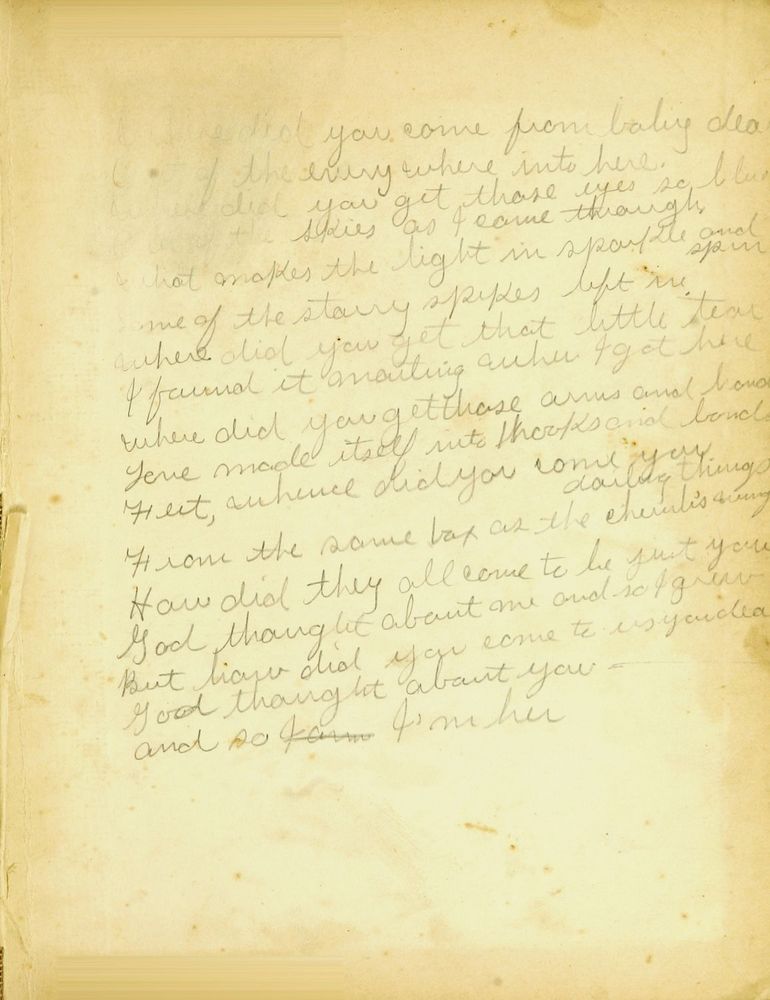 did you come from baby dea
of the everywhere into here.
did you get those eyes so blu
the skies as I came through.
what makes the light in sparkle and
spin
me of the starry spikes left in.
where did you get that little tear
I found it waiting when I got here
where did you get those arms and hand
Love made itself into hooks and bands
Feet, whence did you come you
darling things
From the same box as the cherub's wing
How did they all come to be just you
God thought about me and so I grew
But how did you come to us you dea
God thought about you —
and so I am I'm her